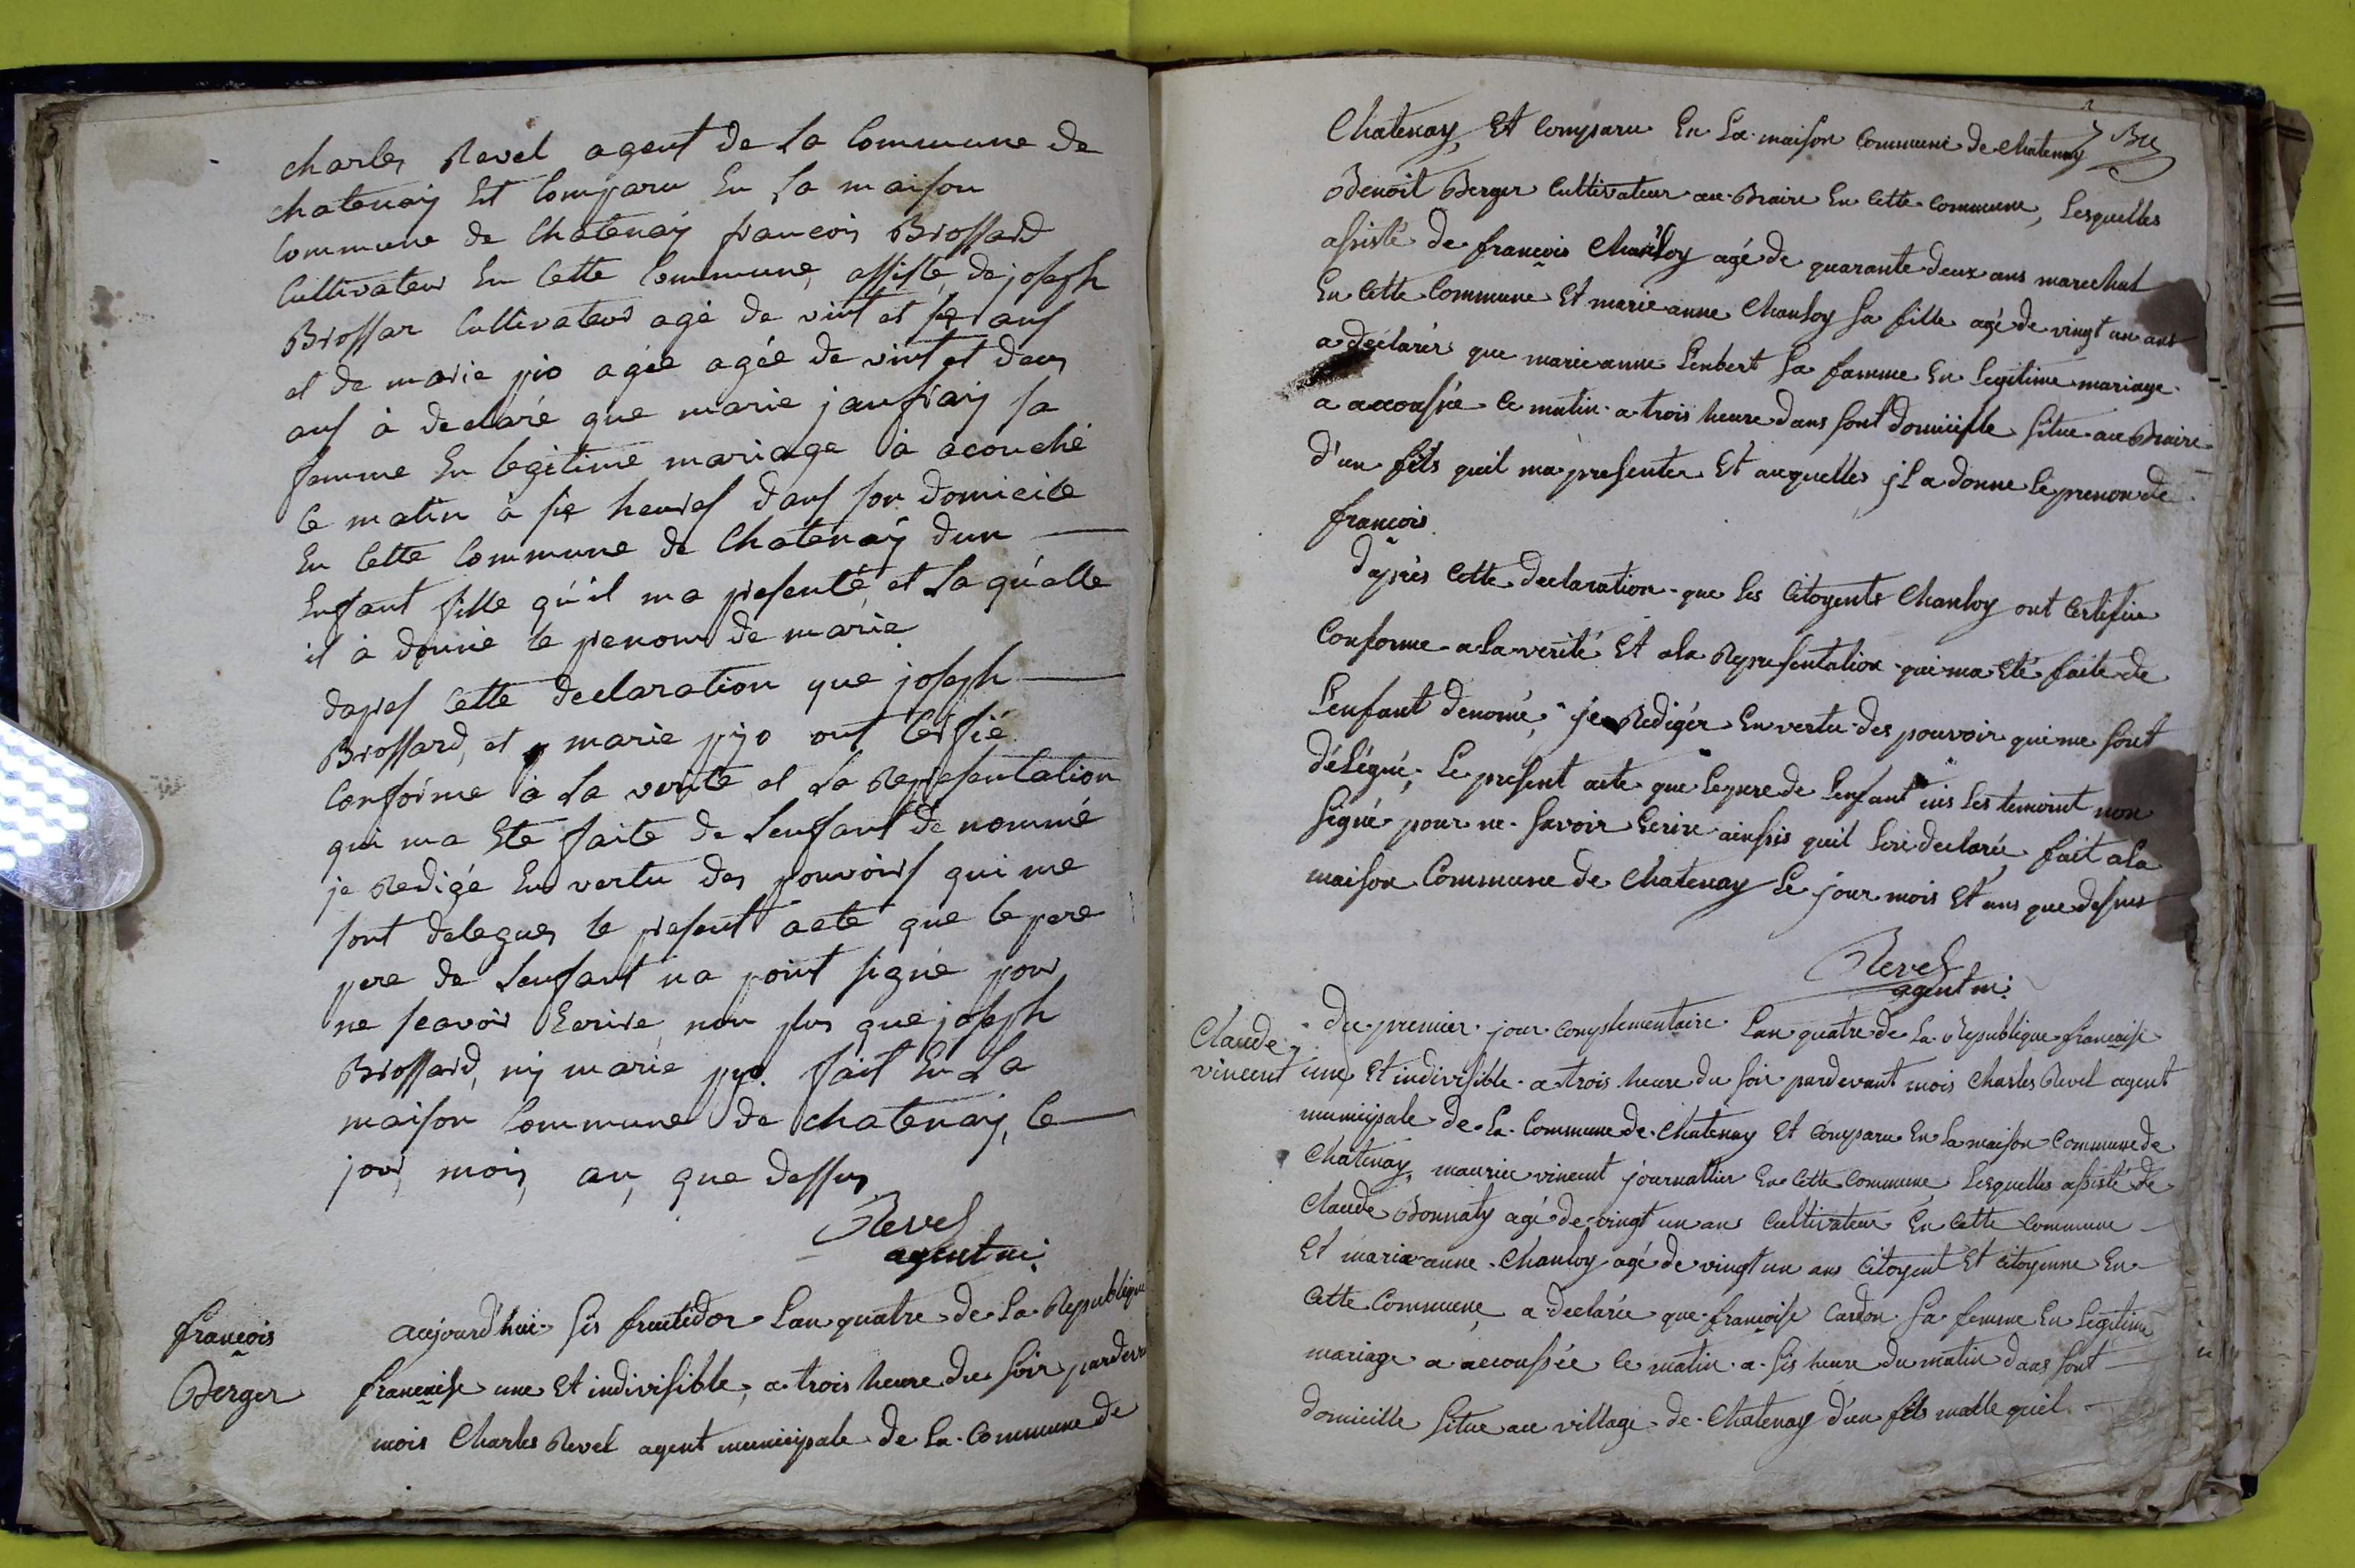 charles Revel agent de la Commune de
chatenay Est Comparu En la maison
Commune de Chatenay francois Brossard
Cultivateur En Cette Commune, assisté, de joseph
Brossar Cultivateur agé de vint et six ans
et de marie pio agée agée de vint et deux
ans à declaré que marie janfray sa
femme En legitime mariage à acouché
le matin à six heures dans son domicile
En Cette Commune de Chatenay dun
Enfant fille qu'il ma presenté, et la qu'elle
il à donné le penom de marie
dapres Cette declaration que joseph
Brossard, et marie pyo ont Cerfié
Conforme à la verité et la Representation
qui ma Eté faite de lenfant de nommé
je Redigé En vertu des pouvoirs qui me
sont delegues le present acte que le pere
pere de lenfant na point signé pour
ne scavoir Ecrire, non plus que joseph
Brossard, ny marie pyo. fait En La
maison Commune de chatenay, le
jour, mois, an, que dessus
Revel
agent m.
francois
Berger
aujourd'hui sis fructidor Lan quatre de La Republique
francaise une Et indivisible, a trois heure du soir pardev
mois Charles Revel agent municipale de La Commune de
Chatenay, Et Comparu En La maison Commune de Chatenay
Benoit Berger Cultivateur au Braire En Cette Commune, Lesquelles
assisté de francois Chanloy agé de quarante deux ans marechal
En Cette Commune Et marie anne Chanloy sa fille agé de vingt un ans
a déclarér que marie anne Lenbert sa famme En Legitime mariage
a accoussée Ce matin a trois heure dans sont domicille situe au Braire
d'un fils quil ma presenter Et auquelles jl a donne Le prenon de
francois
d'après Cette declaration que Les Citoyents Chanloy ont Certifiu
Conforme a La verité Et a la Representation qui ma Eté faite de
Lenfant denomé, je Redigér En vertu des pouvoir qui me sont
délégué, Le present acte que Le pere de Lenfant nis Les temoint non
signé pour ne savoir Ecrire ainssis quil Lon declarée, fait a La
maison Commune de Chatenay Le jour mois Et ans que desus
Revel
agent m.
Claude
vincent
du premier jour Complementaire Lan quatre de La Republique francaise
une Et indivisible a trois heure du soir pardevant mois Charles Revel agent
municipale de La Commune de Chatenay Et Comparu En La maison Commune de
Chatenay, maurice vincent journallier En Cette Commune, Lesquelles assisté de
Claude Bonnaty agé de vingt un ans Cultivateur En Cette Commune
Et marie anne Chanloy agé de vingt un ans Citoyent Et Citoyenne En
Cette Commune, a declarée que francoise Cardon sa femme En Legitime
mariage a accoussée Ce matin a sis heure du matin dans sont
domicille situe au village de Chatenay d'un fils malle quil